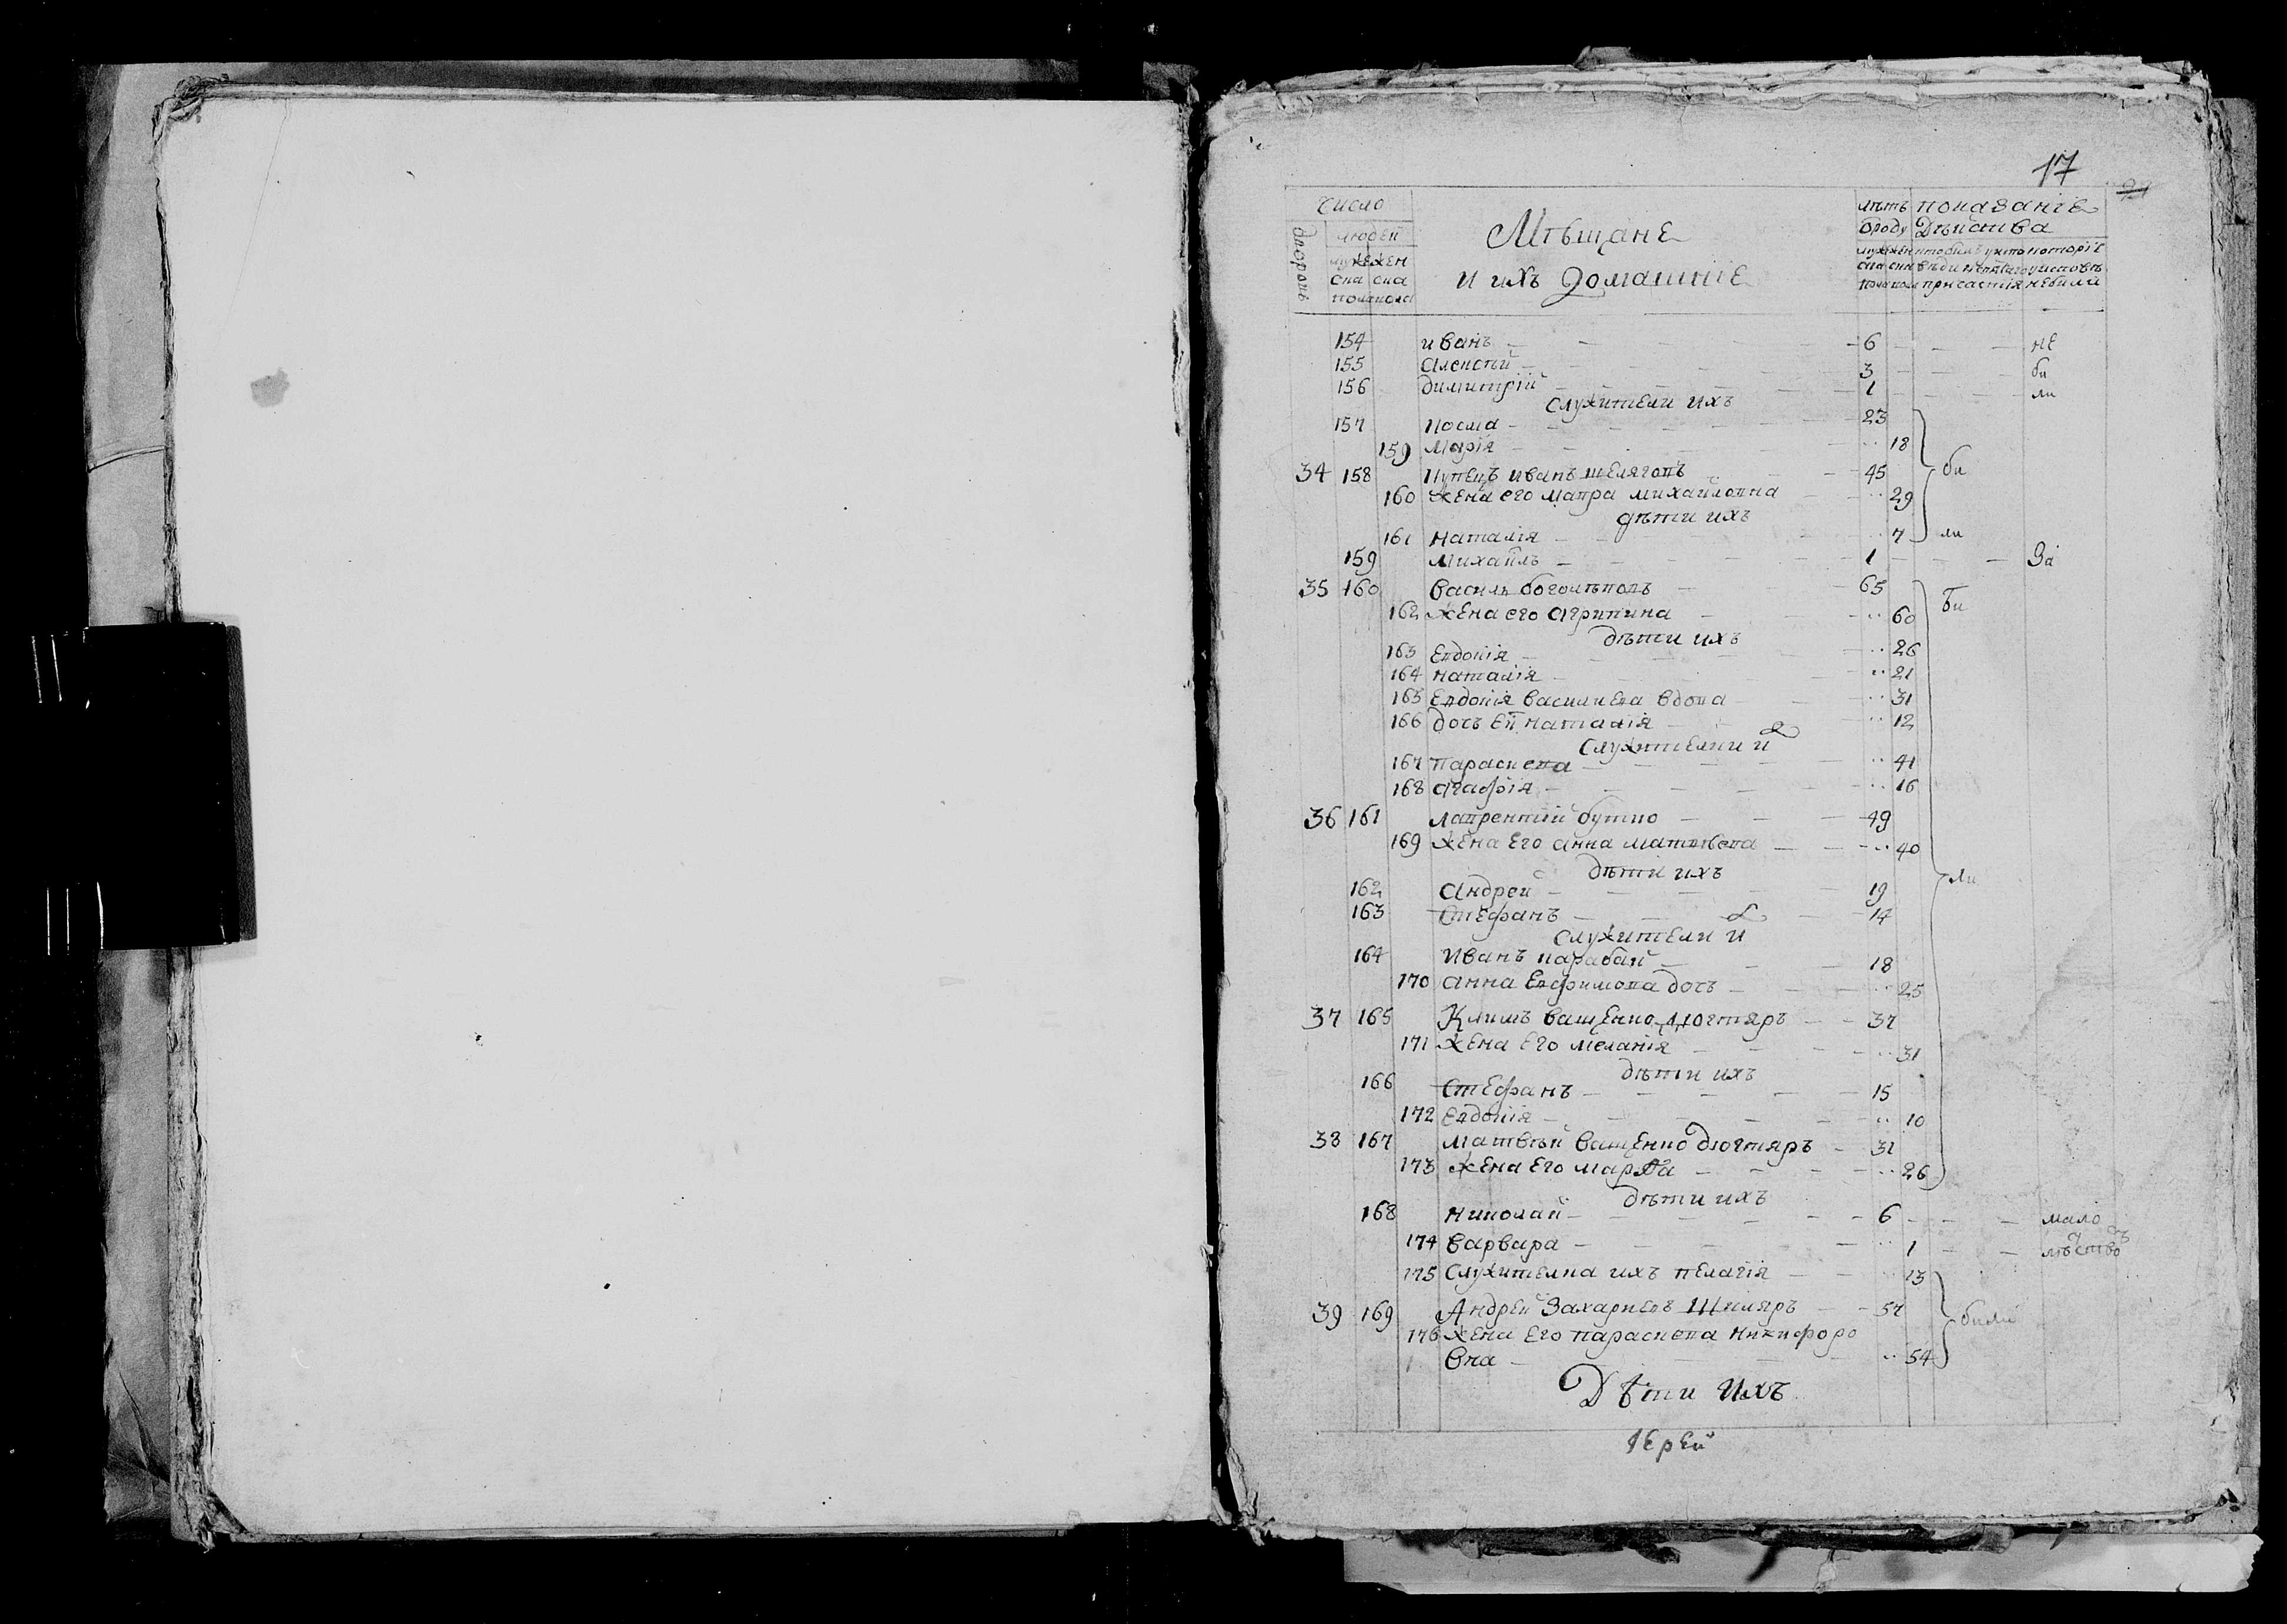 17
Число
лѣтъ показаніе
дворовъ
людей
Мѣщане
ѿ роду Дѣйства
муже жен
муж жен кто билъ у кто которіе
ска ска
и ихъ домашніе
пола пола
154 иванъ 6 не
155 алексѣй 3 би
156 димитрій 1 ли
служители ихъ
157 косма 23
159 марія 18
34 158 купецъ иванъ шеляговъ 45 би
160 жена его мавра михайловна 29
дѣти ихъ
161 наталія 7 ли
159 михайлъ 1 За
35 160 василь боголѣповъ 65 би
162 жена его агрипина 60
дѣти ихъ
163 евдокія 26
164 наталія 21
165 евдокія василиева вдова 31
166 дочъ ей наталія 12
служителки ихъ
167 параскева 41
168 агафія 16
36 161 лаврентій бутко 49
169 жена его анна матвѣева 40
дѣти ихъ
162 андрей 19 ли
163 стефанъ 14
служители ихъ
164 иванъ карабай 18
170 анна евфимова дочъ 25
37 165 Климъ ващенко дюгтяръ 37
171 жена его меланія 31
дѣти ихъ
166 стефанъ 15
172 евдокія 10
38 167 матвѣй ващенко дюгтяръ 31
173 жена его марѳа 26
дѣти ихъ
168 николай 6 мало
174 варвара 1 лѣтство
175 служителка ихъ пелагія 13
39 169 Андрей Захариевъ Шкляръ 57 били
176 жена его параскева никифоро
вна 54
Дѣти ихъ
іерей